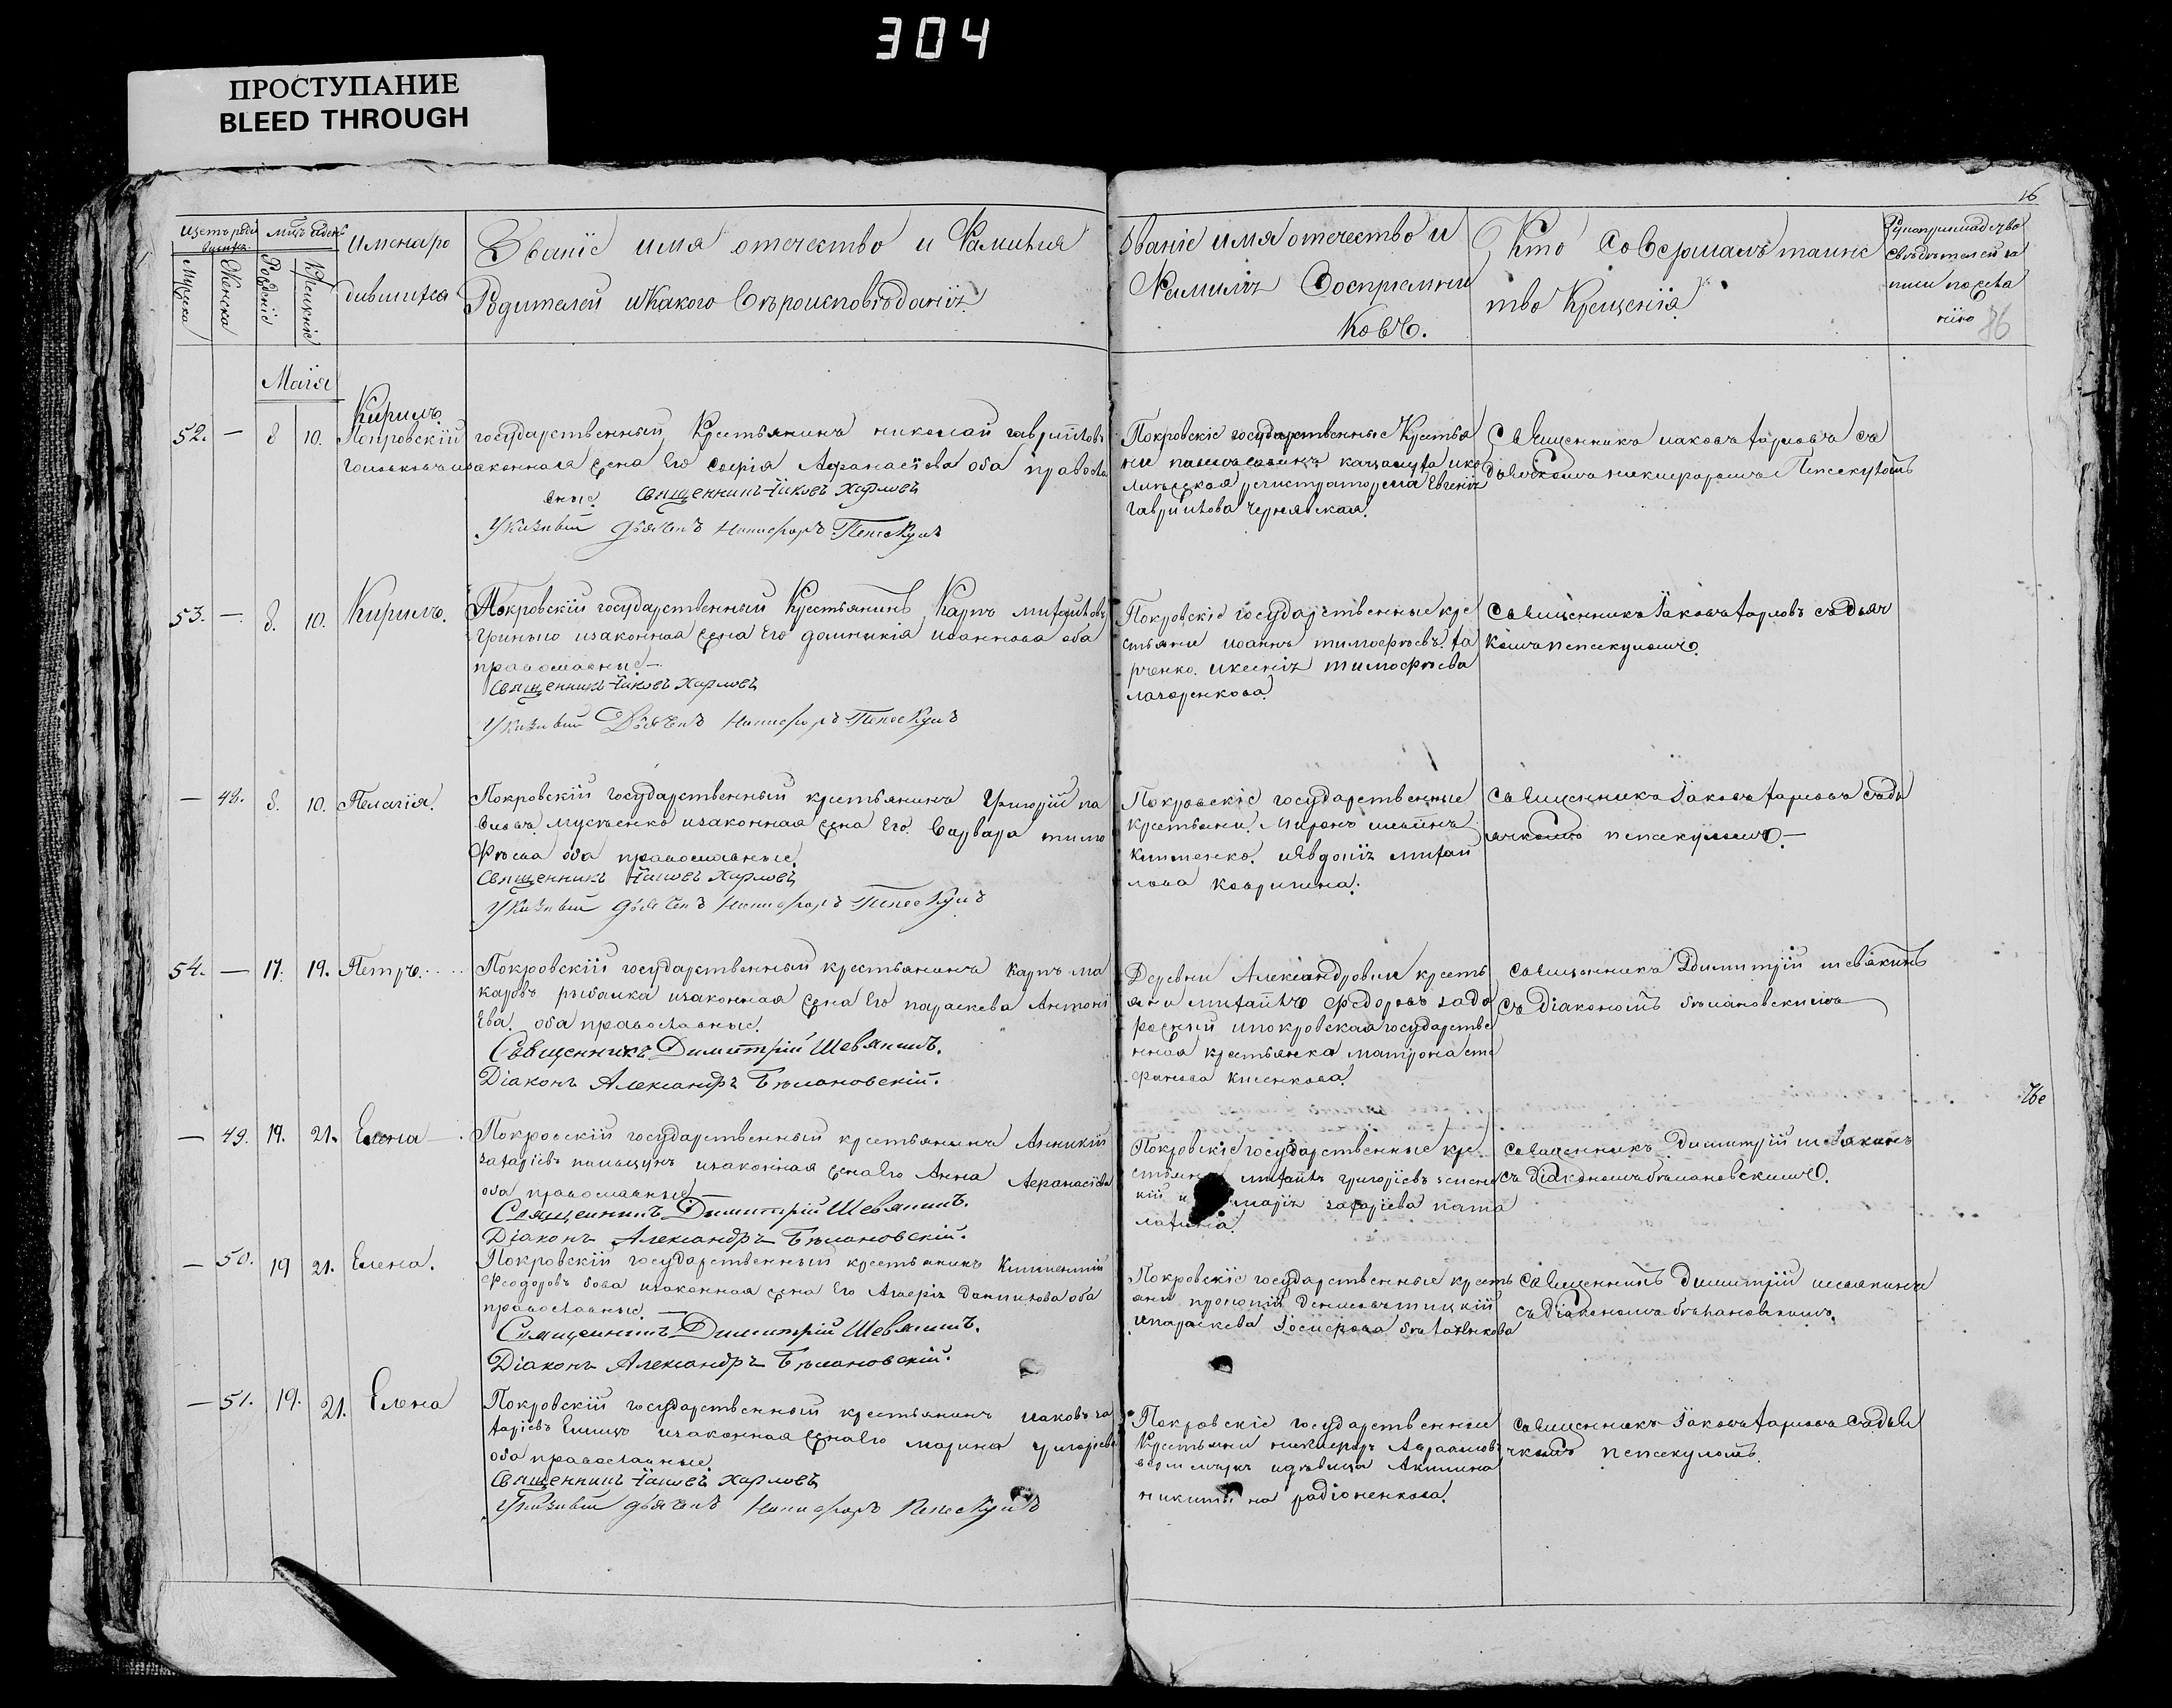 304
ПРОСТУПАНИЕ
BLEED THROUGH
16
Счетъ роди
вшихся
Мужска
Женска
Мцъ и день
Рожденіе
Крещеніе
Имена ро
дившихся
Званіе имя отечество и Фамилія
Родителей и какого вѣроисповѣданія.
Званіе имя отечество и
Фамилія Воспріемни
ковъ.
Кто Совершалъ таинс
тво Крещенія
Рукоприкладство
свѣдѣтелей за
писи по жела
нію
86
Маія
52. — 8 10. Кирилъ
Покровскій государственный Крестьянинъ николай гавриловъ
изаконная жена Его софія Афанасіева оба правосла
вные. священникъ Іаковъ Харловъ
Указный дьячекъ Никифоръ Пепескулъ
Покровскіе государственные Крестья
не
регистраторша Евгенія
гаврилова чернявская.
Священникъ иаковъ харловъ съ
дьячкомъ никифоромъ Пепескуломъ
53. — 8. 10. Кирилъ.
Покровскій государственный Крестьянинъ Карпъ михайловъ
гринько изаконная жена Его домникія иоаннова оба
православные —
священникъ Іаковъ Харловъ
Указный Дьячекъ Никифоръ Пепескулъ
Покровскіе государственные кре
стьяни иоаннъ тимофѣевъ ха
рченко. иксенія тимофѣева
лазаренкова.
Священникъ Іаковъ харловъ съ дьяч
комъ пепескуломъ.
— 48. 8. 10. Пелагія.
Покровскій государственный крестьянинъ Григорій па
вловъ мусѣенко изаконная жена Его варвара тимо
фѣева оба православные.
Священникъ Іаковъ Харловъ
Указный дьячекъ Никифоръ Пепескулъ
Покровскіе государственные
крестьяни Миронъ ильинъ
клименко. иЕвдокія михай
лова
Священникъ Іаковъ харловъ съ дь
ячкомъ пепескуломъ —
54. — 17. 19. Петръ.
Покровскій государственный крестьянинъ Карпъ ма
каровъ рыбалка изаконная жена Его параскева Антоні
Ева. оба православные.
Священникъ Димитрій Шевякинъ.
Діаконъ Александръ Бѣлановскій.
Деревни Александровки кресть
янинъ михайлъ федоровъ задо
рожный ипокровская государстве
нная крестьянка матрона сте
фанова
священникъ Димитрій шевякинъ
съ Діакономъ бѣлановскимъ
86
— 49. 19. 21. Елена
Покровскій государственный крестьянинъ Анникій
захаріевъ изаконная жена Его Анна Афанасіева
оба православные —
Священникъ Димитрій Шевякинъ.
Діаконъ Александръ Бѣлановскій.
Покровскіе государственные кре
стьяни михайлъ григоріевъ зелен
кій и марія захаріева
священникъ Димитрій шевякинъ
съ діакономъ бѣлановскимъ.
— 50. 19 21. Елена.
Покровскій государственный крестьянинъ Климентій
Феодоровъ бова изаконная жена Его данилова оба
православные —
Священникъ Димитрій Шевякинъ.
Діаконъ Александръ Бѣлановскій.
Покровскіе государственные кресть
яни прокопій денисовъ
ипараскева Іосифова
священникъ Димитрій шевякинъ
съ Діакономъ бѣлановскимъ.
— 51. 19. 21. Елена
Покровскій государственный крестьянинъ иаковъ за
харіевъ изаконная жена Его марина григоріева
оба православные.
Священникъ Іаковъ Харловъ
Указный дьячекъ Никифоръ Пепескулъ
Покровскіе государственные
Крестьяни никифоръ Авраамовъ
идѣвица Акилина
никитина радіоненкова.
священникъ Іаковъ харловъ съ дья
чкомъ пепескуломъ.